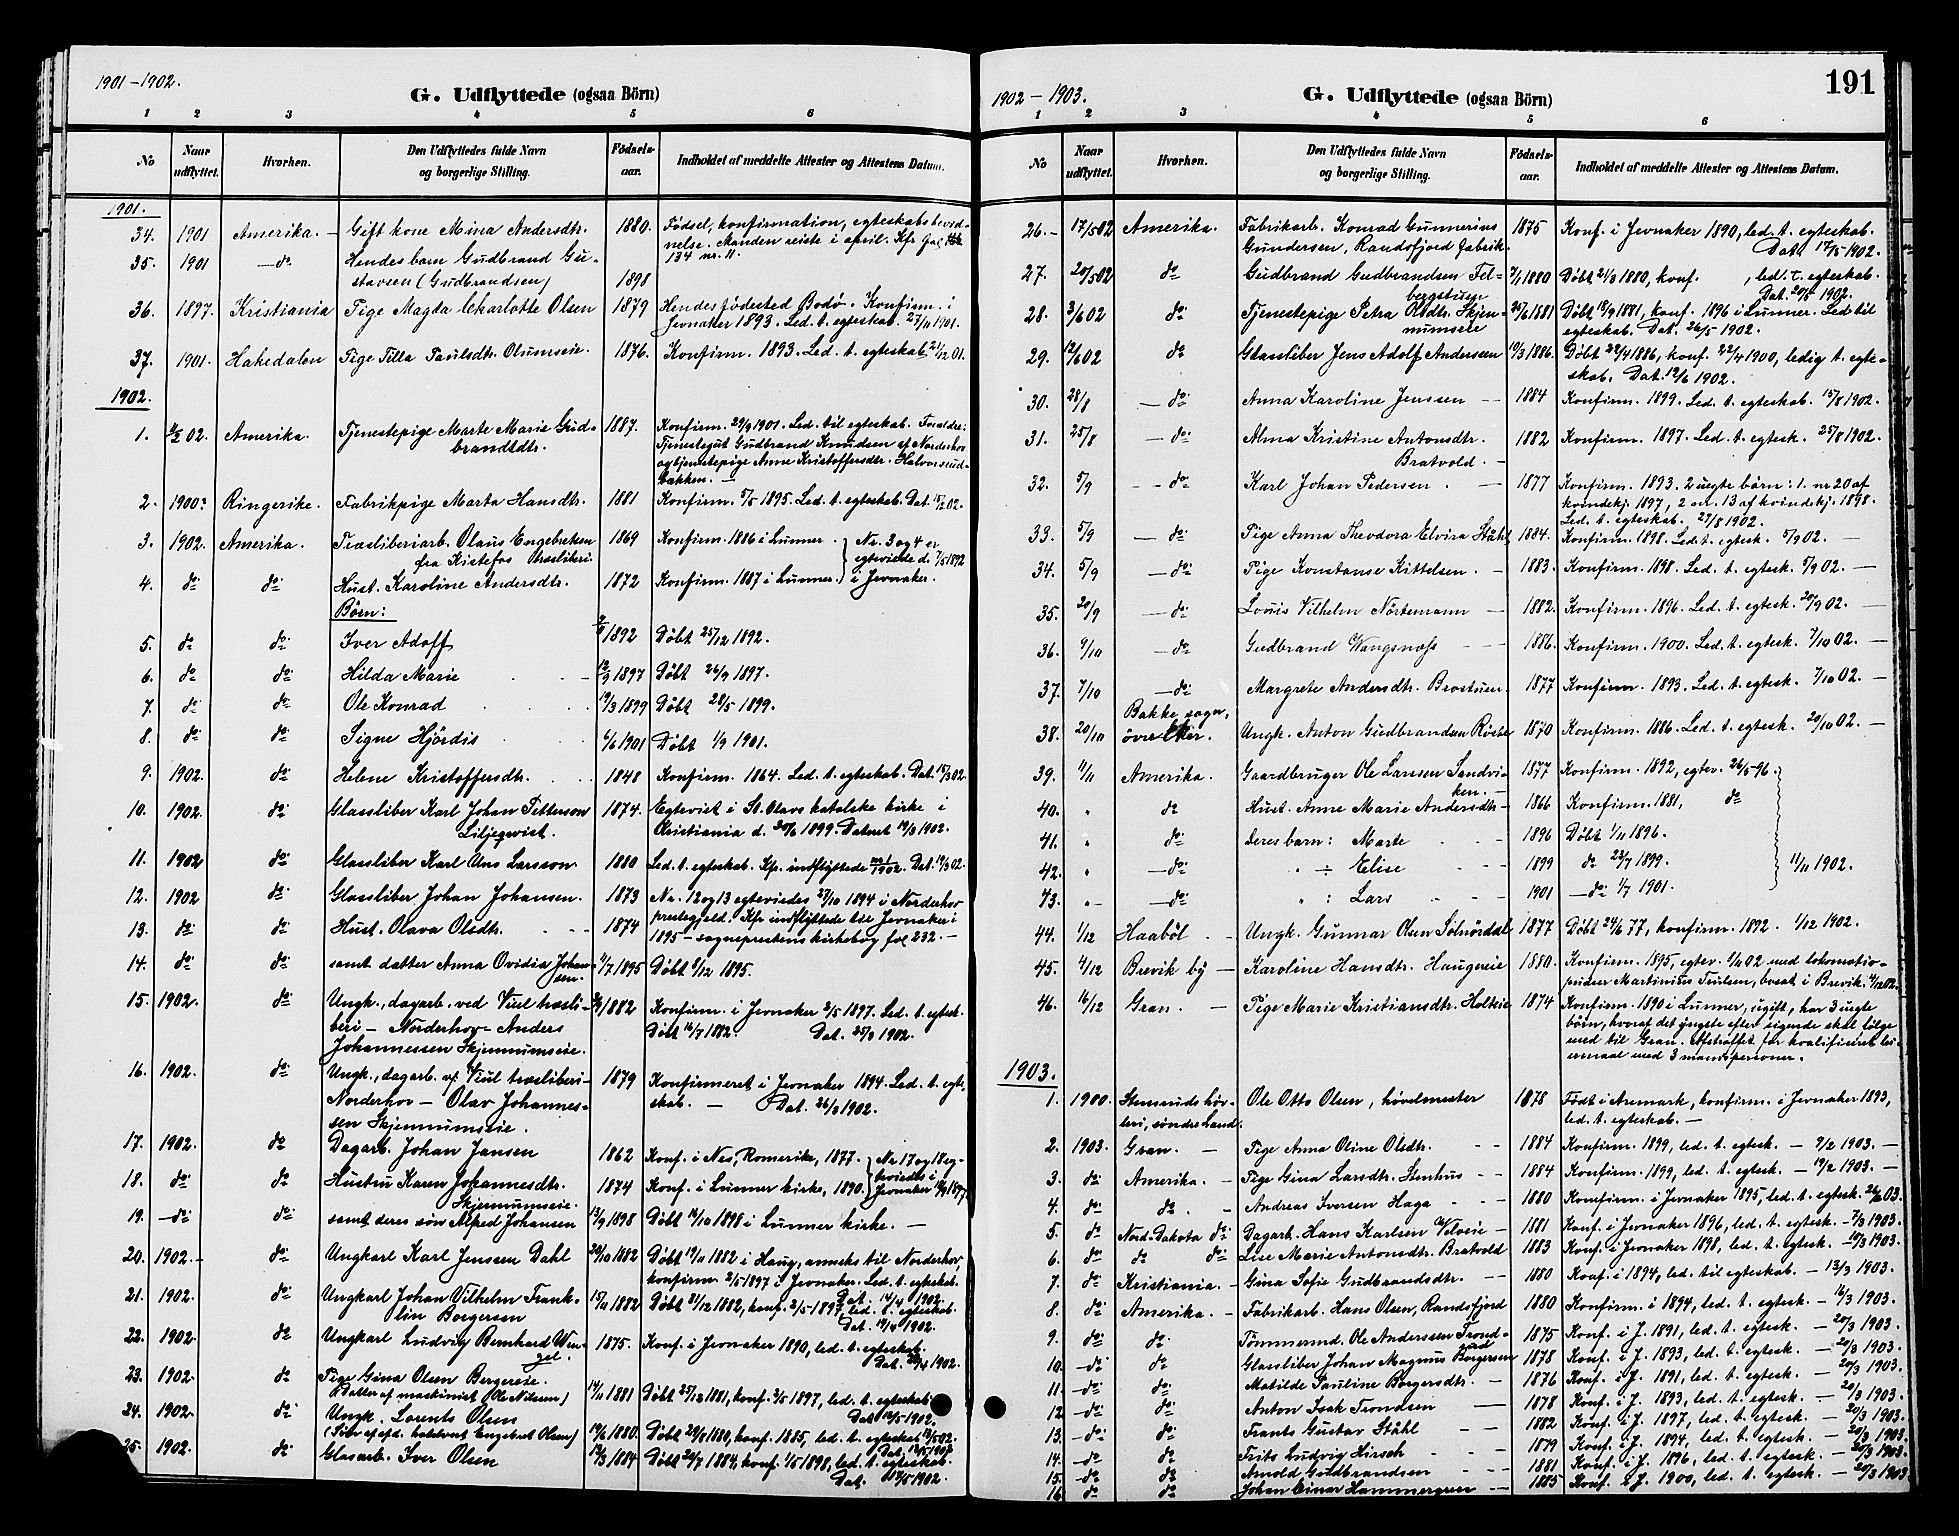 1901-1902.
G. Udflyttede (ogsaa Börn)
1 2 3 4 5 6
No Naar udflyttet. Hvorhen. Den Udflyttedes fulde Navn og borgerlige Stilling. Födsels-aar. Indholdet af meddelte Attester og Attestens Datum.
1901.
34. 1901 Amerika. - Gift kone Mina Andersdtr. 1880. Fødsel, konfirmation, egteskabsbevid-
nelse. Manden reiste i april. Kfr
134 nr. 11.
35. 1901 - do Hendes barn Gudbrand Gu-
stavsen (Gudbrandsen) 1898
36. 1897. Kristiania Pige Magda Charlotte Olsen 1879 Hendes fødested Bodø. Konfirm. i
Jevnaker 1893. Led. t. egteskab. 27/11 1901.
37. 1901. Hakedalen Pige Tilla Paulsdtr. Olumseie. 1876. Konfirm. 1893. Led. t. egteskab. 21/12 01.
1902.
1. 02. Amerika. Tjenestepige Marte Marie Gud-
brandsdtr. 1887. Konfirm. 29/9 1901. Led. til egteskab. Foraldre:
Tjenestegut Gudbrand Knudsen af Norderhov
og tjenestepige Anne Kristoffersdtr. Halvorsrud-
bakken. -
2. 1900? Ringerike. Fabrikpige Marta Hansdtr. 1881 Konfirm. 5/5 1895. Led. t. egteskab. Dat. 02.
3. 1902. Amerika. Træsliberiarb. Olaus Engebretsen
fra Kistefos Træsliberi. 1869 Konfirm. 1886 i Lunner. Nr. 3 og 4 er
egteviede d. 7/5 1892
4. do do Hust. Karoline Andersdtr. 1872 Konfirm. 1887 i Lunner. i Jevnaker.
Børn:
5. do do Iver Adolf 1892 Døbt 25/12 1892.
6. do do Hilda Marie 12/9 1897 Døbt 26/9 1897.
7. do do Ole Konrad 19/3 1899 Døbt 28/5 1899.
8. do do Signe Hjørdis 6/6 1901 Døbt 1/9 1901.
9. 1902. do Helene Kristoffersdtr. 1848 Konfirm. 1864. Led. t. egteskab. Dat. 15/3 02.
10. 1902. do Glassliber Karl Johan Petterson
Liljeqvist. 1874. Egteviet i St. Olavs katolske kirke i
Christiania d. 1899. Dateret 19/3 1902.
11. 1902 do Glassliber Karl Larsson 1880 Led. t. egteskab. Kfr. indflyttede nr 1/1902. Dat. 19/3 02.
12. 1902 do Glassliber Johan Johansen. 1873 Nr. 12 og 13 egteviedes 27/10 1894 i Norderhov
prestegjeld. Kfr indflyttede til Jevnaker i
13. do do Hust. Olava Olsdtr. 1874 1895 - sogneprestens kirkebog fol 232. -
14. do do samt datter Anna Ovidia Johan-
sen. 1/7 1895 Døbt 8/12 1895.
15. 1902. do Ungk., dagarb. ved Viul træsli-
beri - Norderhov - Anders
Johannessen Skjennumseie. 1882 Konfirm. i Jevnaker 2/5 1897. Led. t. egtesk.
Døbt 16/7 1882. Dat. 25/3 1902.
16. 1902. do Ungk., dagarb. v. Viul træsliberi -
Norderhov - Olav Johannes-
sen Skjennumseie. 1879 Konfirmeret i Jevnaker 1894. Led. t. egte-
skab. - Dat. 26/3 1902.
17. 1902. do Dagarb. Johan Jansen 1862 Konf. i Nes, Romerike, 1877. Nr. 17 og 18 eg-
teviedes i
18. do do Hustru Karen Johannesdtr.
Skjennumseie. 1874 Konf. i Lunner kirke, 1890. Jevnaker 1897.
19. - do do samt deres søn Alfred Johansen 13/9 1898 Døbt 16/10 1898 i Lunner kirke. -
20. 1902. - do Ungkarl Karl Jenssen Dahl 20/10 1882 Døbt 19/11 1882 i Haug, anneks til Norderhov,
konfirm. 2/5 1897 i Jevnaker. Led. t. egteskab.
Dat. 14/4 1902.
21. 1902. do Ungkarl Johan Vilhelm Frank-
lin Borgersen 15/11 1882 Døbt 31/12 1882, konf. 2/5 1897, led. t. egteskab.
Dat. 19/4 1902.
22. 1902. do Ungkarl Ludvig Bernhard Wen-
gel. 1875. Konf. i Jevnaker 1890, led. t. egteskab.
Dat. 1902.
23. 1902. do Pige Gina Olsen Bergereie.
(Datter af maskinist Ole Nilsen) 14/11 1881 Døbt 25/12 1881, konf. 2/5 1897, led. t. egteskab
Dat. 12/5 1902.
24. 1902. do Ungk. Lorents Olsen
(Søn af afd. Engebret Olsen) 19/6 1880. Døbt 29/8 1880, konf. 1885, led. t. egteskab
25. 1902. do Glasarb. Iver Olsen 13/3 1884 Døbt 20/7 1884, konf. 1/5 1898, led. t. egteskab.
Dat. 12/5 1902.
1902 - 1903.
G. Udflyttede (ogsaa Börn)
191
1 2 3 4 5 6
No Naar udflyttet. Hvorhen. Den Udflyttedes fulde Navn og borgerlige Stilling. Födsels-aar. Indholdet af meddelte Attester og Attestens Datum.
26. - 17/5 02 Amerika. Fabrikarb. Konrad Gunnerius
Gundersen, Randsfjord fabrik. 1875 Konf. i Jevnaker 1890, led. t. egteskab.
Dat. 17/5 1902.
27. 20/5 02 do Gudbrand Gudbrandsen Fel-
bergstuen 7/1 1880 Døbt 21/3 1880, konf. , led. t. egteskab.
Dat. 20/5 1902.
28. 3/6 02 do Tjenestepige Petra Olsdtr. Skjen-
numseie 1881 Døbt 18/9 1881, konf. 1896 i Lunner. Led til
egteskab. Dat. 26/5 1902.
29. 12/6 02 do Glassliber Jens Adolf Andersen 19/3 1886. Døbt 22/4 1886, konf. 22/4 1900, ledig t. egte-
skab. Dat. 12/6 1902.
30. 28/8 - do Anna Karoline Jenssen - 1884 Konfirm. 1899. Led. t. egteskab. 15/8 1902.
31. 25/8 - do Alma Kristine Antonsdtr.
Bratvold. - 1882 Konfirm. 1897. Led. t. egtesk. 25/8 1902.
32. 5/9 - do Karl Johan Pedersen. - 1877 Konfirm. 1893. 2 uegte børn: 1. nr 20 af
kvindekj. 1897, 2 nr. 13 af kvindekj. 1898.
Led. t. egteskab. 27/8 1902.
33. 5/9 - do Pige Anna Theodora Elvira Ståhl 1884. Konfirm. 1898. Led. t. egtesk. 5/9 02. -
34. 5/9 - do Pige Konstanse Kittelsen. - 1883. Konfirm. 1898. Led. t. egtesk. 5/9 02. -
35. 20/9 - do Louis Vilhelm Nörtemann - 1882. Konfirm. 1896. Led. t. egtesk. 20/9 02. -
36. 9/10 - do Gudbrand Wangsnæss - 1886. Konfirm. 1900. Led. t. egtesk. 7/10 02. -
37. 7/10 - do Margrete Andersdtr. Brostuen. 1877 Konfirm. 1893. Led. t. egtesk. 7/10 02. -
38. 20/10 Bakke sogn,
øvre Eker. Ungk. Anton Gudbrandsen Røste 1870 Konfirm. 1886. Led. t. egtesk. 20/10 02. -
39. 11/11 Amerika. Gaardbruger Ole Larssen Sandvi-
ken. - 1877 Konfirm. 1892, egtev. 26/5 96.
40. " do Hust. Anne Marie Andersdtr. - 1866 Konfirm. 1881, do
41. " do deres barn: Marte - - 1896 Døbt 1/11 1896.
42. " - do " Elise - - 1899 do 23/7 1899. 11/11 1902.
43. " - do " : Lars - - 1901 - do 1/7 1901.
44. 1/12 Haabøl - Ungk. Gunnar Olsen Sølnørdal 1877 Døbt 24/6 77, konfirm. 1892. 1/12 1902.
45. 4/12 Brevik by - Karoline Hansdtr. Haugereie 1880. Konfirm. 1895, egtev. 02 med lokomotiv-
pudser Martinius Paulsen, bosat i Brevik. 4/12 02.
46. 16/12 Gran. - Pige Marie Kristiansdtr. Holteie 1874 Konfirm. 1890 i Lunner, ugift, har 3 uegte
børn, hvoraf det yngste efter sigende skal følge
med til Gran. Afstraffet for kvalificeret lei-
ermaal med 3 mandspersoner.
1903.
1. 1900. Stensruds høv-
leri, søndre Land. Ole Otto Olsen, høvelmester 1878 Født i Aremark, konfirm. i Jevnaker 1893,
led. t. egteskab. -
2. 1903. Gran. - Pige Anna Oline Olsdtr. - - 1884 Konfirm. 1899, led. t. egtesk. - 9/2 1903. -
3. do Amerika. - Pige Gina Larsdtr. Stenhus - - 1884 Konfirm. 1899, led. t. egtesk. - 19/2 1903. -
4. do do. - Andreas Iversen Haga - - 1880 Konfirm. i Jevnaker 1895, led. t. egtesk. 03.
5. do Nord. Dakota do Dagarb. Hans Karlsen Velveie - 1881 Konf. i Jevnaker 1896, led. t. egtesk. - 7/3 1903.
6. do do do Lise Marie Antonsdtr. Bratvold 1883 Konf. i Jevnaker 1898, led. t. egtesk. - 10/3 1903.
7. do Kristiania. - Gina Sofie Gudbrandsdtr. - - 1880 Konf. i 1894, led. til egteskab. - 13/3 1903.
8. do Amerika. - Fabrikarb. Hans Olsen, Randsfjord 1880 Konfirm. i 1894, led. t. egtesk. - 16/3 1903.
9. do do. Tømmermd. Ole Anderssen Trond-
rud 1875 Konf. i J. 1891, led. t. egtesk. - 20/3 1903.
10. - do do Glassliber Johan Magnus Borgersen 1878 Konf. i J. 1893, led. t. egtesk. - 20/3 1903.
11 - do do Matilde Pauline Borgersdtr. - 1876 Konf. i J. 1891, led. t. egtesk. - 20/3 1903.
12 - do do Anton Isak Trondsen - - 1878 Konf. i J. 1893, led. t. egtesk. - 20/3 1903.
13. - do do Frants Gustav Ståhl - - 1882 Konf. i J. 1897, led. t. egtesk. - 20/3 1903.
14. - do do Frits Ludvig Hirsch - - 1879 Konf. i J. 1894, led. t. egtesk. - 20/3 1903.
15. - do do Arnold Gudbrandsen - - 1881 Konf. i J. 1896, led. t. egtesk. - 20/3 1903.
16 do do Johan Einar Hammergren - 1885 Konf. i J. 1900, led. t. egtesk. - 20/3 1903.